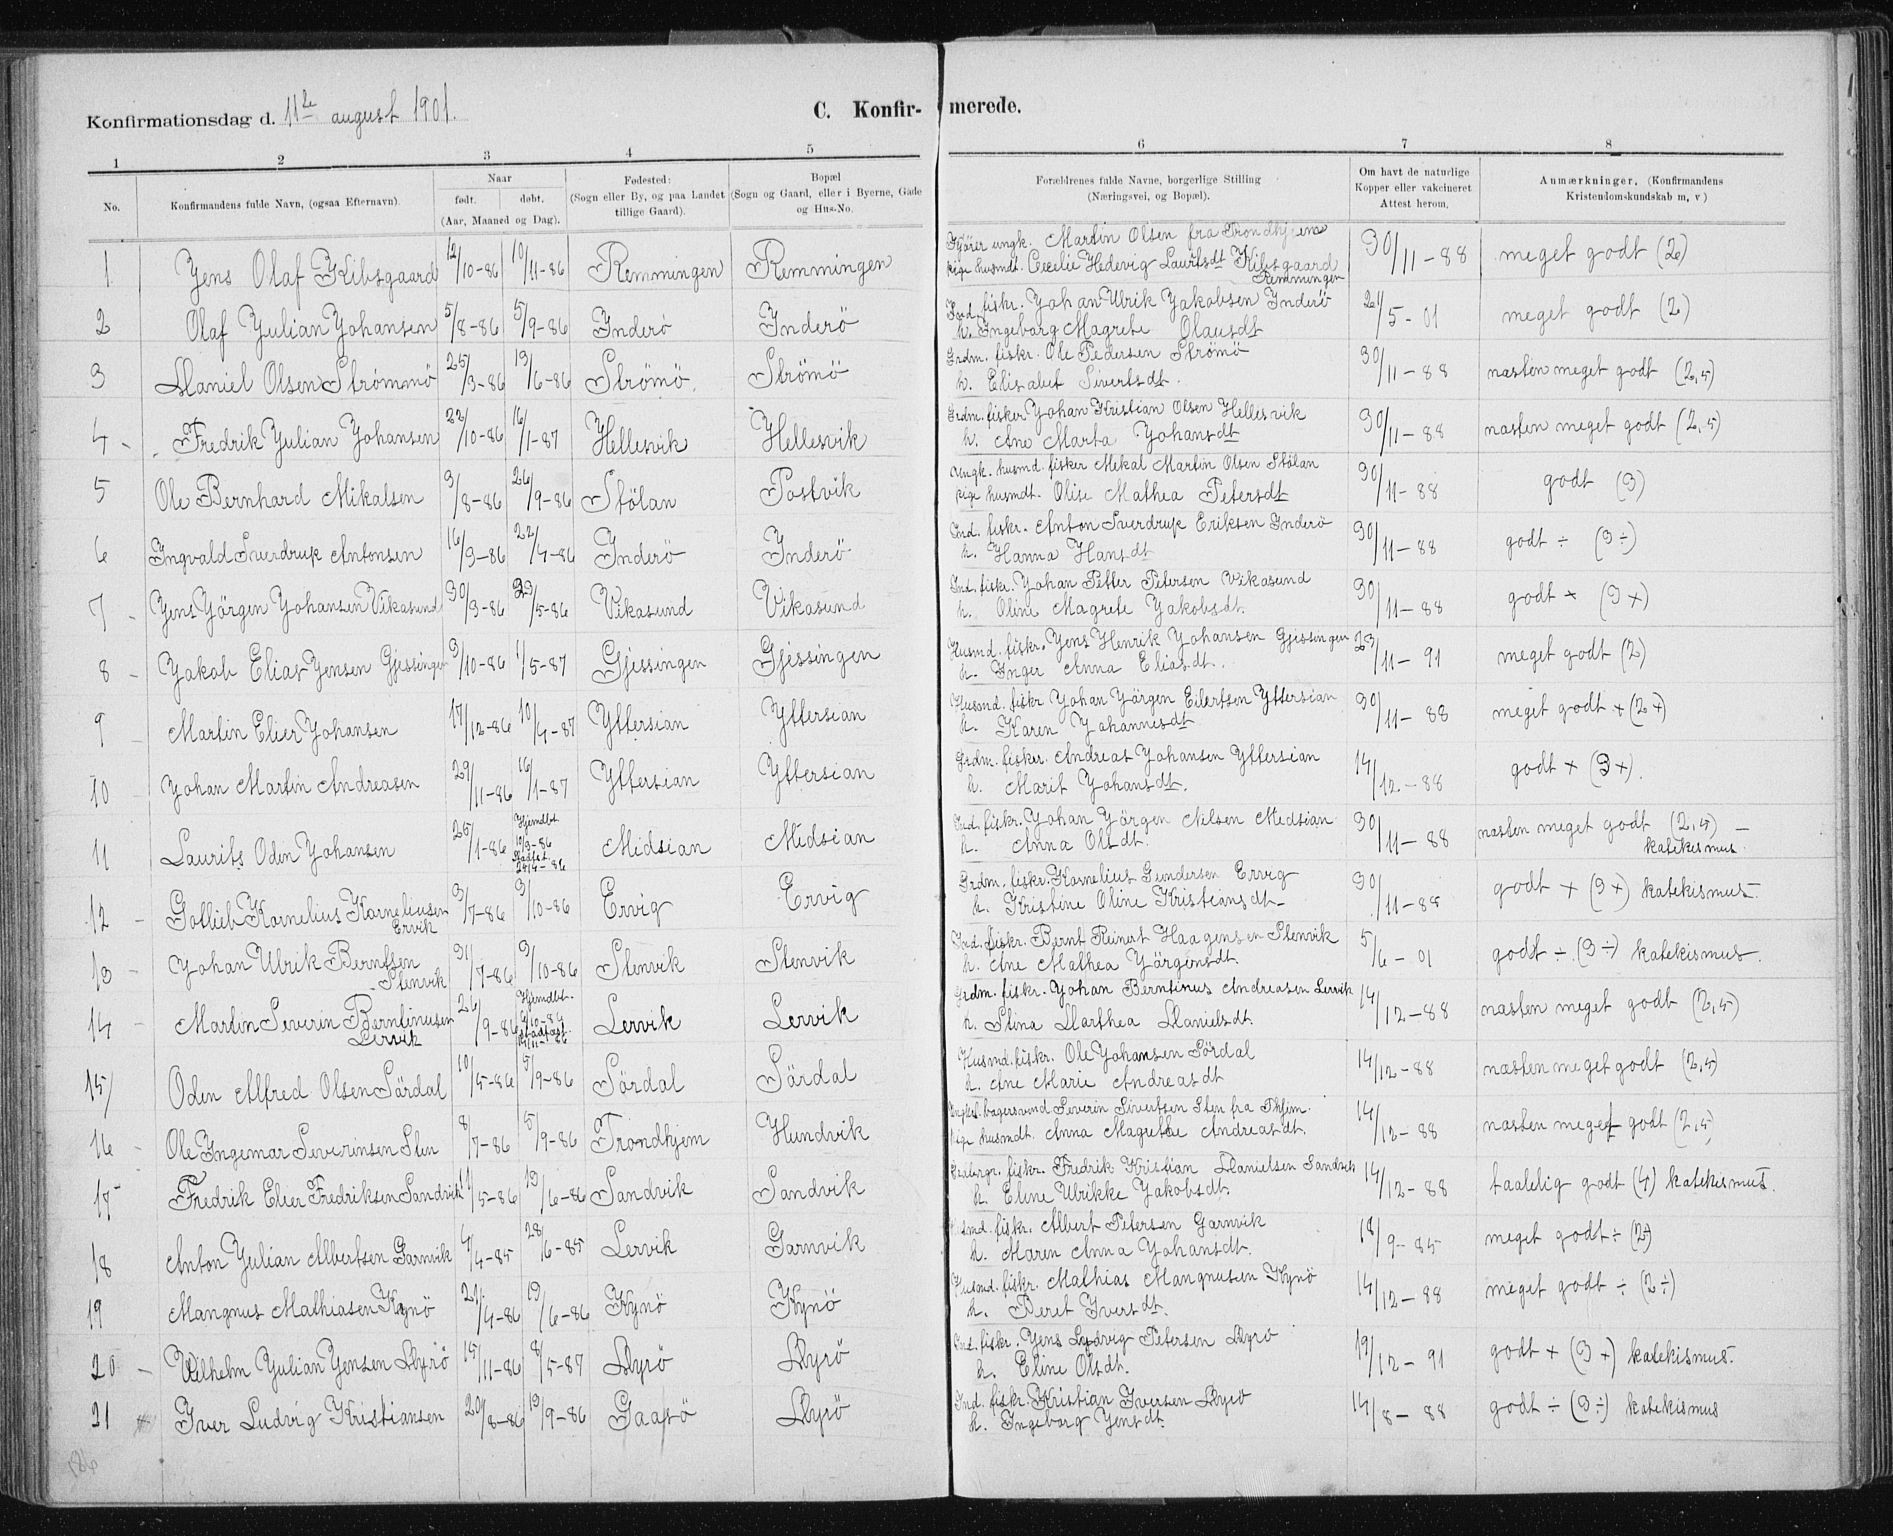 Konfirmationsdag d. 11te august 1901.
C. Konfir- merede.
1 2 3 4 5 6 7 8
No.
Konfirmandens fulde Navn, (ogsaa Efternavn).
Naar
født. døbt.
(Aar, Maaned og Dag).
Fødested:
(Sogn eller By, og paa Landet
tillige Gaard).
Bopæl
(Sogn og Gaard, eller i Byerne, Gade
og Hus-No.
Forældrenes fulde Navne, borgerlige Stilling
(Næringsvei, og Bopæl).
Om havt de naturlige
Kopper eller vakcineret
Attest herom,
Anmærkninger, (Konfirmandens
Kristendomskundskab m, v)
1 Yens Olaf Kibsgaard 12/10-86 10/11-86 Remmingen Remmingen
ungk. Martin Olsen fra Trondhjem
pige husmdt. Cecelie Hedevig Lauritsdt Kibsgaard
Remmingen
30/11-88 meget godt (2)
2 Olaf Yulian Yohansen 5/8-86 5/9-86 Inderö Inderö
Ind. fiskr. Yohan Ulrik Yakobsen Inderö
h. Ingeborg Magrete Olausdt
21/5-01 meget godt (2)
3 Daniel Olsen Strömmö 25/3-86 13/6-86 Strömö. Strömö
Grdm. fiskr. Ole Pedersen Strömö
h. Elisabet Sivertsdt.
30/11-88 næsten meget godt (2,5)
4 - Fredrik Yulian Yohansen 22/10-86 16/1-87 Hellesvik Hellesvik
Grdm. fisker Yohan Kristian Olsen Hellesvik
h. Ane Marta Yohansdt
30/11-88 næsten meget godt (2,5)
5 Ole Bernhard Mikalsen 3/8-86 26/9-86 Stölan Postvik
Ungk. husmd. fisker Mekal Martin Olsen Stölan
pige husmdt. Olise Mathea Petersdt
30/11-88 godt (3)
6 Ingvald Sverdrup Antonsen 16/3-86 22/4-86 Inderö Inderö
Ind. fiskr. Anton Sverdrup Eriksen Inderö
h. Hanna Hansdt
30/11-88 godt ÷ (3÷)
7 - Yens Yörgen Yohansen Vikasund 30/3-86 23/5-86 Vikasund Vikasund
Ind. fiskr. Yohan Petter Petersen Vikasund
h. Oline Magrete Yakobsdt.
30/11-88 godt + (3+)
8 - Yakob Elias Yensen Gjessingen 3/10-86 1/5-87 Gjessingen Gjessingen
Husmd. fiskr. Yens Henrik Yohansen Gjessingen
h. Inger Anna Eliasdt.
23/11-91 meget godt (2)
9 - Martin Elier Yohansen 17/12-86 10/4-87 Yttersian Yttersian
Husmd. fiskr Yohan Yörgen Eilertsen Yttersian
h. Karen Yohannisdt
30/11-88 meget godt + (2+)
10 Yohan Martin Andreasen 29/11-86 16/1-87 Yttersian Yttersian
Grdm. fisker. Andreas Yohansen Yttersian
h. Marit Yohansdt.
14/12-88 godt + (3+).
11 Laurits Oden Yohansen 25/1-86 Hjemdbt. 10/3-86 Stadfst. 26/4-86 Midsian Midsian
Ind. fiskr. Yohan Yörgen Nilsen Medsian
h. Anna Olsdt.
30/11-88 næsten meget godt (2,5) -
katekismus.
12 - Gotlieb Kornelius Korneliusen
Ervik
3/7-86 3/10-86 Ervig Ervig
Grdm. fiskr. Kornelius Gundersen Ervig
h. Kristine Oline Kristiansdt
30/11-88 godt + (3+) katekismus.
13 - Yohan Ulrik Berntsen
Stenvik
31/7-86 3/10-86 Stenvik Stenvik
Ind. fiskr. Bernt Reinert Haagensen Stenvik
h. Ane Mathea Yörgensdt.
5/6-01 godt ÷ (3÷) katekismus.
14 - Martin Severin Berntinusen
Lervik
26/9-86 Hjemdbt. Stadfæst. Lervik Lervik
Grdm. fiskr. Yohan Berntinus Andreasen Lervik
h. Stina Darthea Danielsdt.
14/12-88 næsten meget godt (2,5)
15 Oden Alfred Olsen Sördal 10/5-86 5/9-86 Sördal Sördal
Husmd. fiskr. Ole Yohansen Sördal
h. Ane Marie Andreasdt
14/12-88 næsten meget godt (2,5)
16 - Ole Ingemar Severinsen Sten 8/7-86 5/9-86 Trondhjem Hundvik
bagersvend Severin Sivertsen Sten fra Thjem.
pige husmdt. Anna Magrete Andreasdt.
14/12-88 næsten meget godt (2,5)
17 Fredrik Elier Fredriksen Sandvik 11/5-86 13/6-86 Sandvik Sandvik
fiskr. Fredrik Kristian Danielsen Sandvik
h. Eline Ulrikke Yakobsdt.
14/12-88 taalelig godt (4) katekismus.
18 Anton Yulian Albertsen Garnvik 4/4-85 28/6-85 Lervik Garnvik
Husmd. fiskr. Albert Petersen Garnvik
h. Maren Anna Yohansdt.
18/9-85 meget godt ÷ (2÷)
19 Mangnus Mathiasen Kynö 21/4-86 13/6-86 Kynö Kynö
Husmd. fiskr. Mathias Mangnusen Kynö
h. Beret Iversdt.
14/12-88 meget godt ÷ (2÷)
20 - Vilhelm Yulian Yensen Dyrö 15/11-86 8/5-87 Dyrö Dyrö
Ind. fiskr. Yens Ludvig Petersen Dyrö
h. Eline Olsdt.
19/12-91 godt + (3+) katekismus.
21 Iver Ludvig Kristiansen 20/8-86 19/9-86 Gaasö Dyrö
Ind. fiskr. Kristian Iversen Dyrö
h. Ingeborg Yensdt.
14/8-88 godt ÷ (3÷) katekismus
186